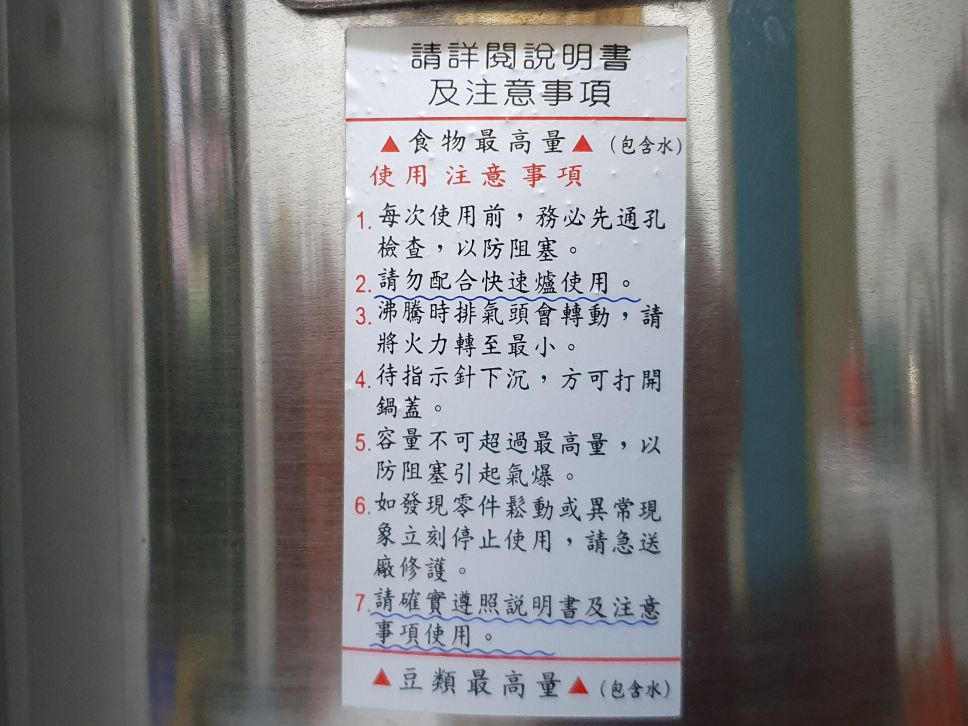 請詳閱說明書
及注意事項
▲食物最高量▲(包含水)
使用注意事項
1.每次使用前，務必先通孔
檢查，以防阻塞。
2.請勿配合快速爐使用。
3.沸騰時排氣頭會轉動，請
將火力轉至最小。
4.待指示針下沉，方可打開
鍋蓋。
5.容量不可超過最高量，以
防阻塞引起氣爆。
6.如發現零件鬆動或異常現
象立刻停止使用，請急送
廠修護。
7.請確實遵照說明書及注意
事項使用。
▲豆類最高量▲(包含水)